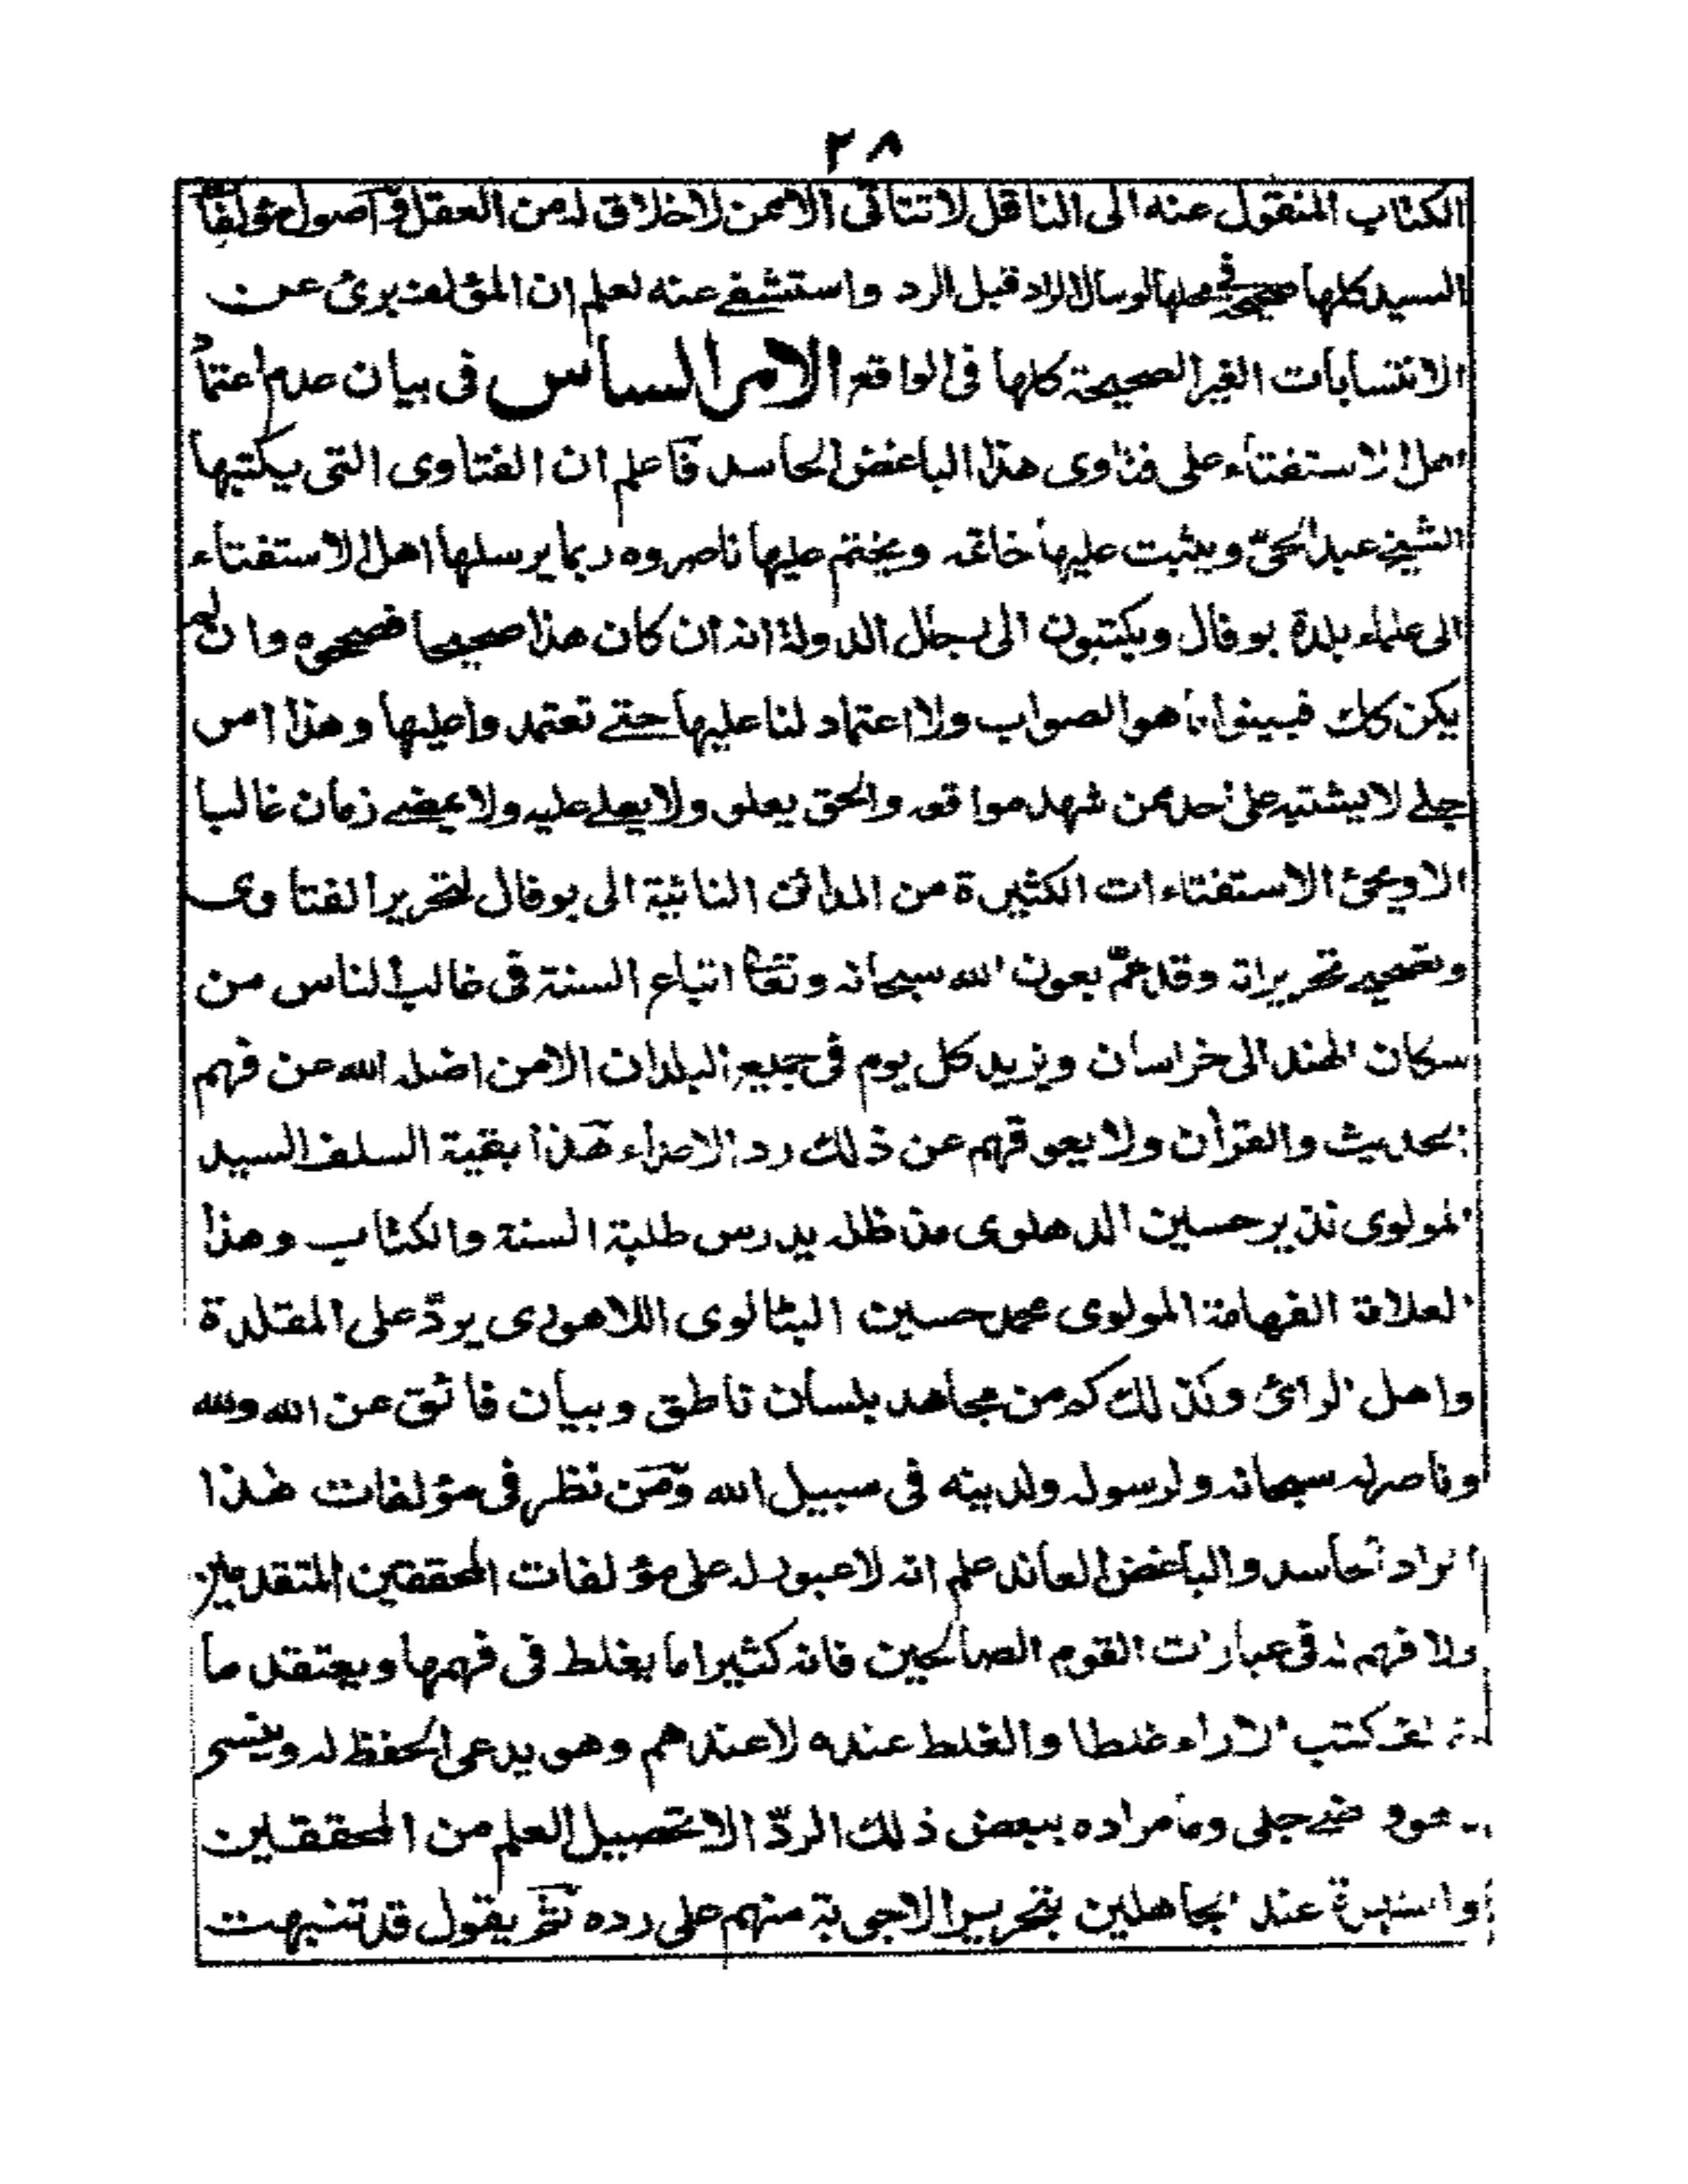 ٢٨
الكتاب المنقول عنه الى الناقل لا تتاتى الا ممن لا خلاق له من العقل واصول مؤلفات
السيد كلها صحيحة فى محلها لو سال الراد قبل الرد واستشفے عنه لعلم ان المؤلف برئ عن
الانتسابات الغير الصحيحة كلها فى الواقع الامر السادس فى بيان عدم اعتماد
اهل الاستفتاء على فتاوى هذا الباغض الحاسد فاعلم ان الفتاوى التى يكتبها
الشيخ عبد الحى ويثبت عليها خاتمه ويختم عليها ناصروه ربما يرسلها اهل الاستفتاء
الى علماء بلدة بوفال ويكتبون الى رجال الدولة انه ان كان هذا صحيحا فصححوه وان لم
يكن كك فبينوا ما هو الصواب ولا اعتماد لنا عليها حتے تعتمدوا عليها وهذا امر
جلے لا يشتبه على احد ممن شهد مواقعه والحق يعلو ولا يعلے عليه ولا يمضے زمان غالبا
الا ويجئ الاستفتاءات الكثيرة من المدائن النائية الى بوفال لتحرير الفتاوى
وتصحيح تحريراته وقد عمّ بعون الله سبحانه وتعا اتباع السنة فى غالب الناس من
سكان الهند الى خراسان ويزيد كل يوم فى جميع البلدان الا من اضله الله عن فهم
الحديث والقرأن ولا يعوقهم عن ذلك رد الاعداء هذا بقية السلف السيد
المولوى نذير حسين الدهلوى مد ظله يدرس طلبة السنة والكتاب وهذا
العلامة الفهامة المولوى محمد حسين البتالوى اللاهورى يردّ على المقلدة
واهل الرائ وكذلك كم من مجاهد بلسان ناطق وبيان فائق عن الله ولله
وناصر له سبحانه ولرسوله ولدينه فى سبيل الله ومن نظر فى مؤلفات هذا
الراد الحاسد والباغض المعاند علم انه لا عبور له على مؤلفات المحققين المتقدمين
ولا فهم له فى عبارات القوم الصالحين فانه كثيرا ما يغلط فى فهمها ويعتقد ما
كتب الاراء غلطا والغلط عنده لا عندهم وهو يدعى الحفظ له وينسى
جلى وما مراده ببعض ذلك الردّ الا تحصيل العلم من المحققين
والشهرة عند الجاهلين بتحرير الاجوبة منهم على رده ثم يقول قد تنبهت